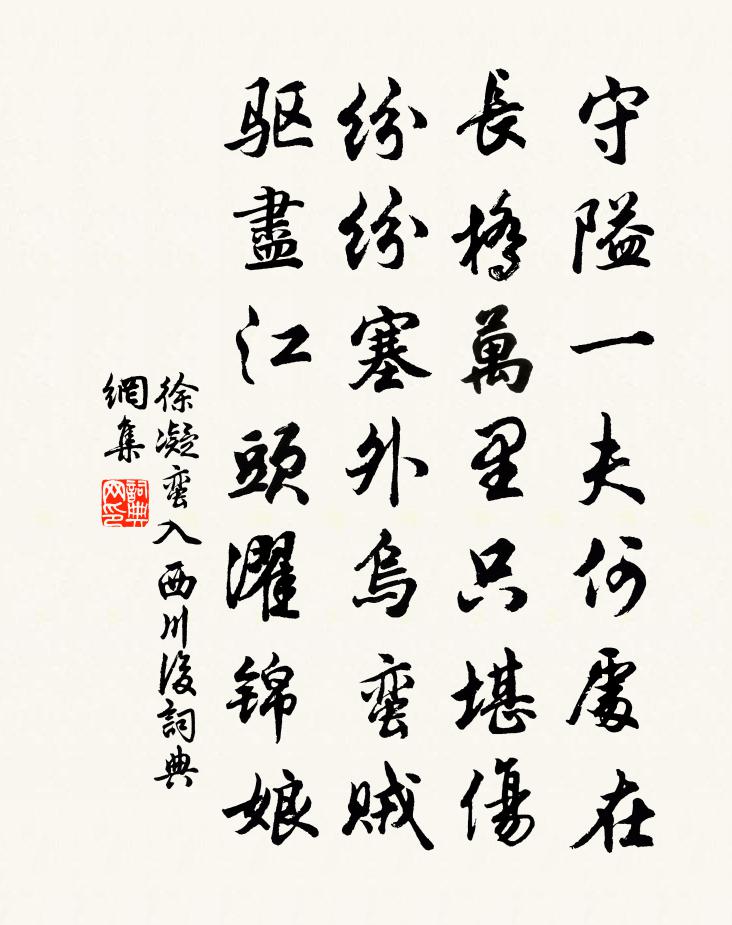 守隘一夫何處在
長橋萬里只堪傷
紛紛塞外烏蛮贼
驱盡江頭濯锦娘
徐凝蛮入西川後詞典
網集
詞典网印